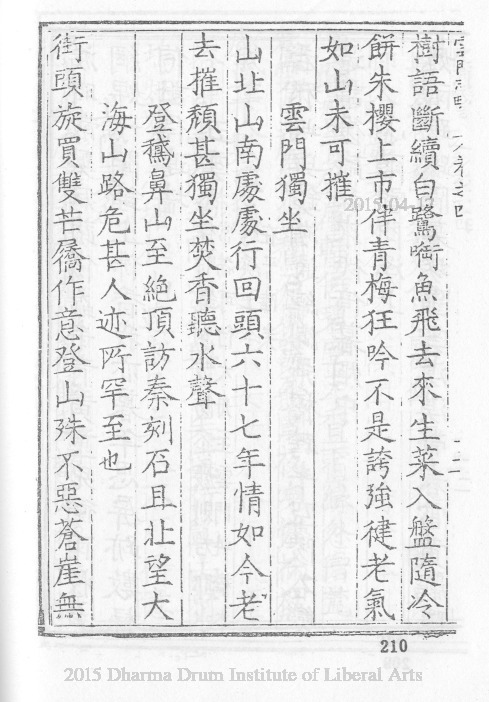 雲門志略 卷之四
樹語斷續白鷺啣魚飛去來生菜入盤隨冷
餅朱櫻上市伴青梅狂吟不是誇強徤老氣
如山未可摧
雲門獨坐
山北山南處處行回頭六十七年情如今老
去摧頹甚獨坐焚香聽水聲
登鵞鼻山至絶頂訪秦刻石且北望大
海山路危甚人迹所罕至也
街頭旋買雙芒屩作意登山殊不惡蒼崖無
2015-04-
210
2015 Dharma Drum Institute of Liberal Arts